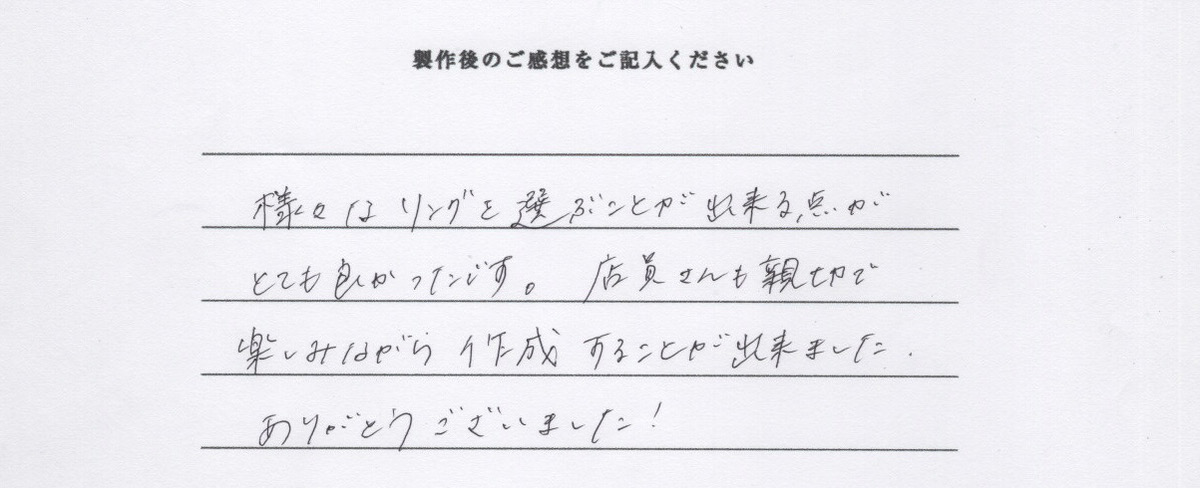 製作後のご感想をご記入ください
様々なリングを選ぶことが出来る点が
とても良かったです。 店員さんも親切で
楽しみながら作成することが出来ました.
ありがとうございました!